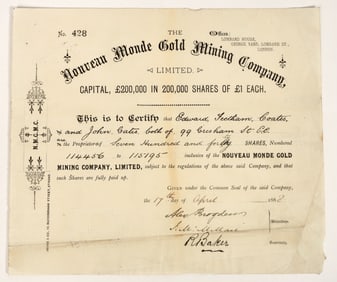 No. 428
THE
Offices:
LOMBARD HOUSE,
GEORGE YARD, LOMBARD ST.,
LONDON.
Nouveau Monde Gold Mining Company,
LIMITED.
CAPITAL, £200,000 IN 200,000 SHARES OF £1 EACH.
This is to Certify that Edward Feetham Coates
and John Coates both of 99 Gresham St E.C.
is the Proprietor of Seven Hundred and forty SHARES, Numbered
114456 to 115195 inclusive of the NOUVEAU MONDE GOLD
MINING COMPANY, LIMITED, subject to the regulations of the above said Company, and that
such Shares are fully paid up.
Given under the Common Seal of the said Company,
the 17th day of April 188
Alex Brogden
Directors.
R Baker
Secretary.
N.M.G.M.C.